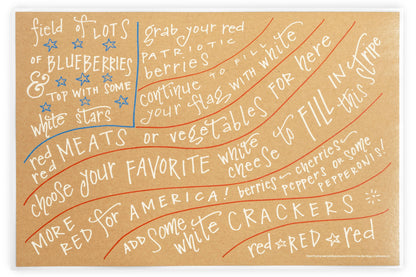 field of LOTS
OF BLUEBERRIES
& TOP WITH SOME
white stars
grab your red
PATRIOTIC
berries
continue TO FILL
your flag WITH white
red MEATS or vegetables FOR here
red
choose your FAVORITE white cheese to FILL IN this stripe
MORE RED for AMERICA! berries ~ cherries ~ peppers or some PEPPERONIS!
ADD some white CRACKERS
red RED red